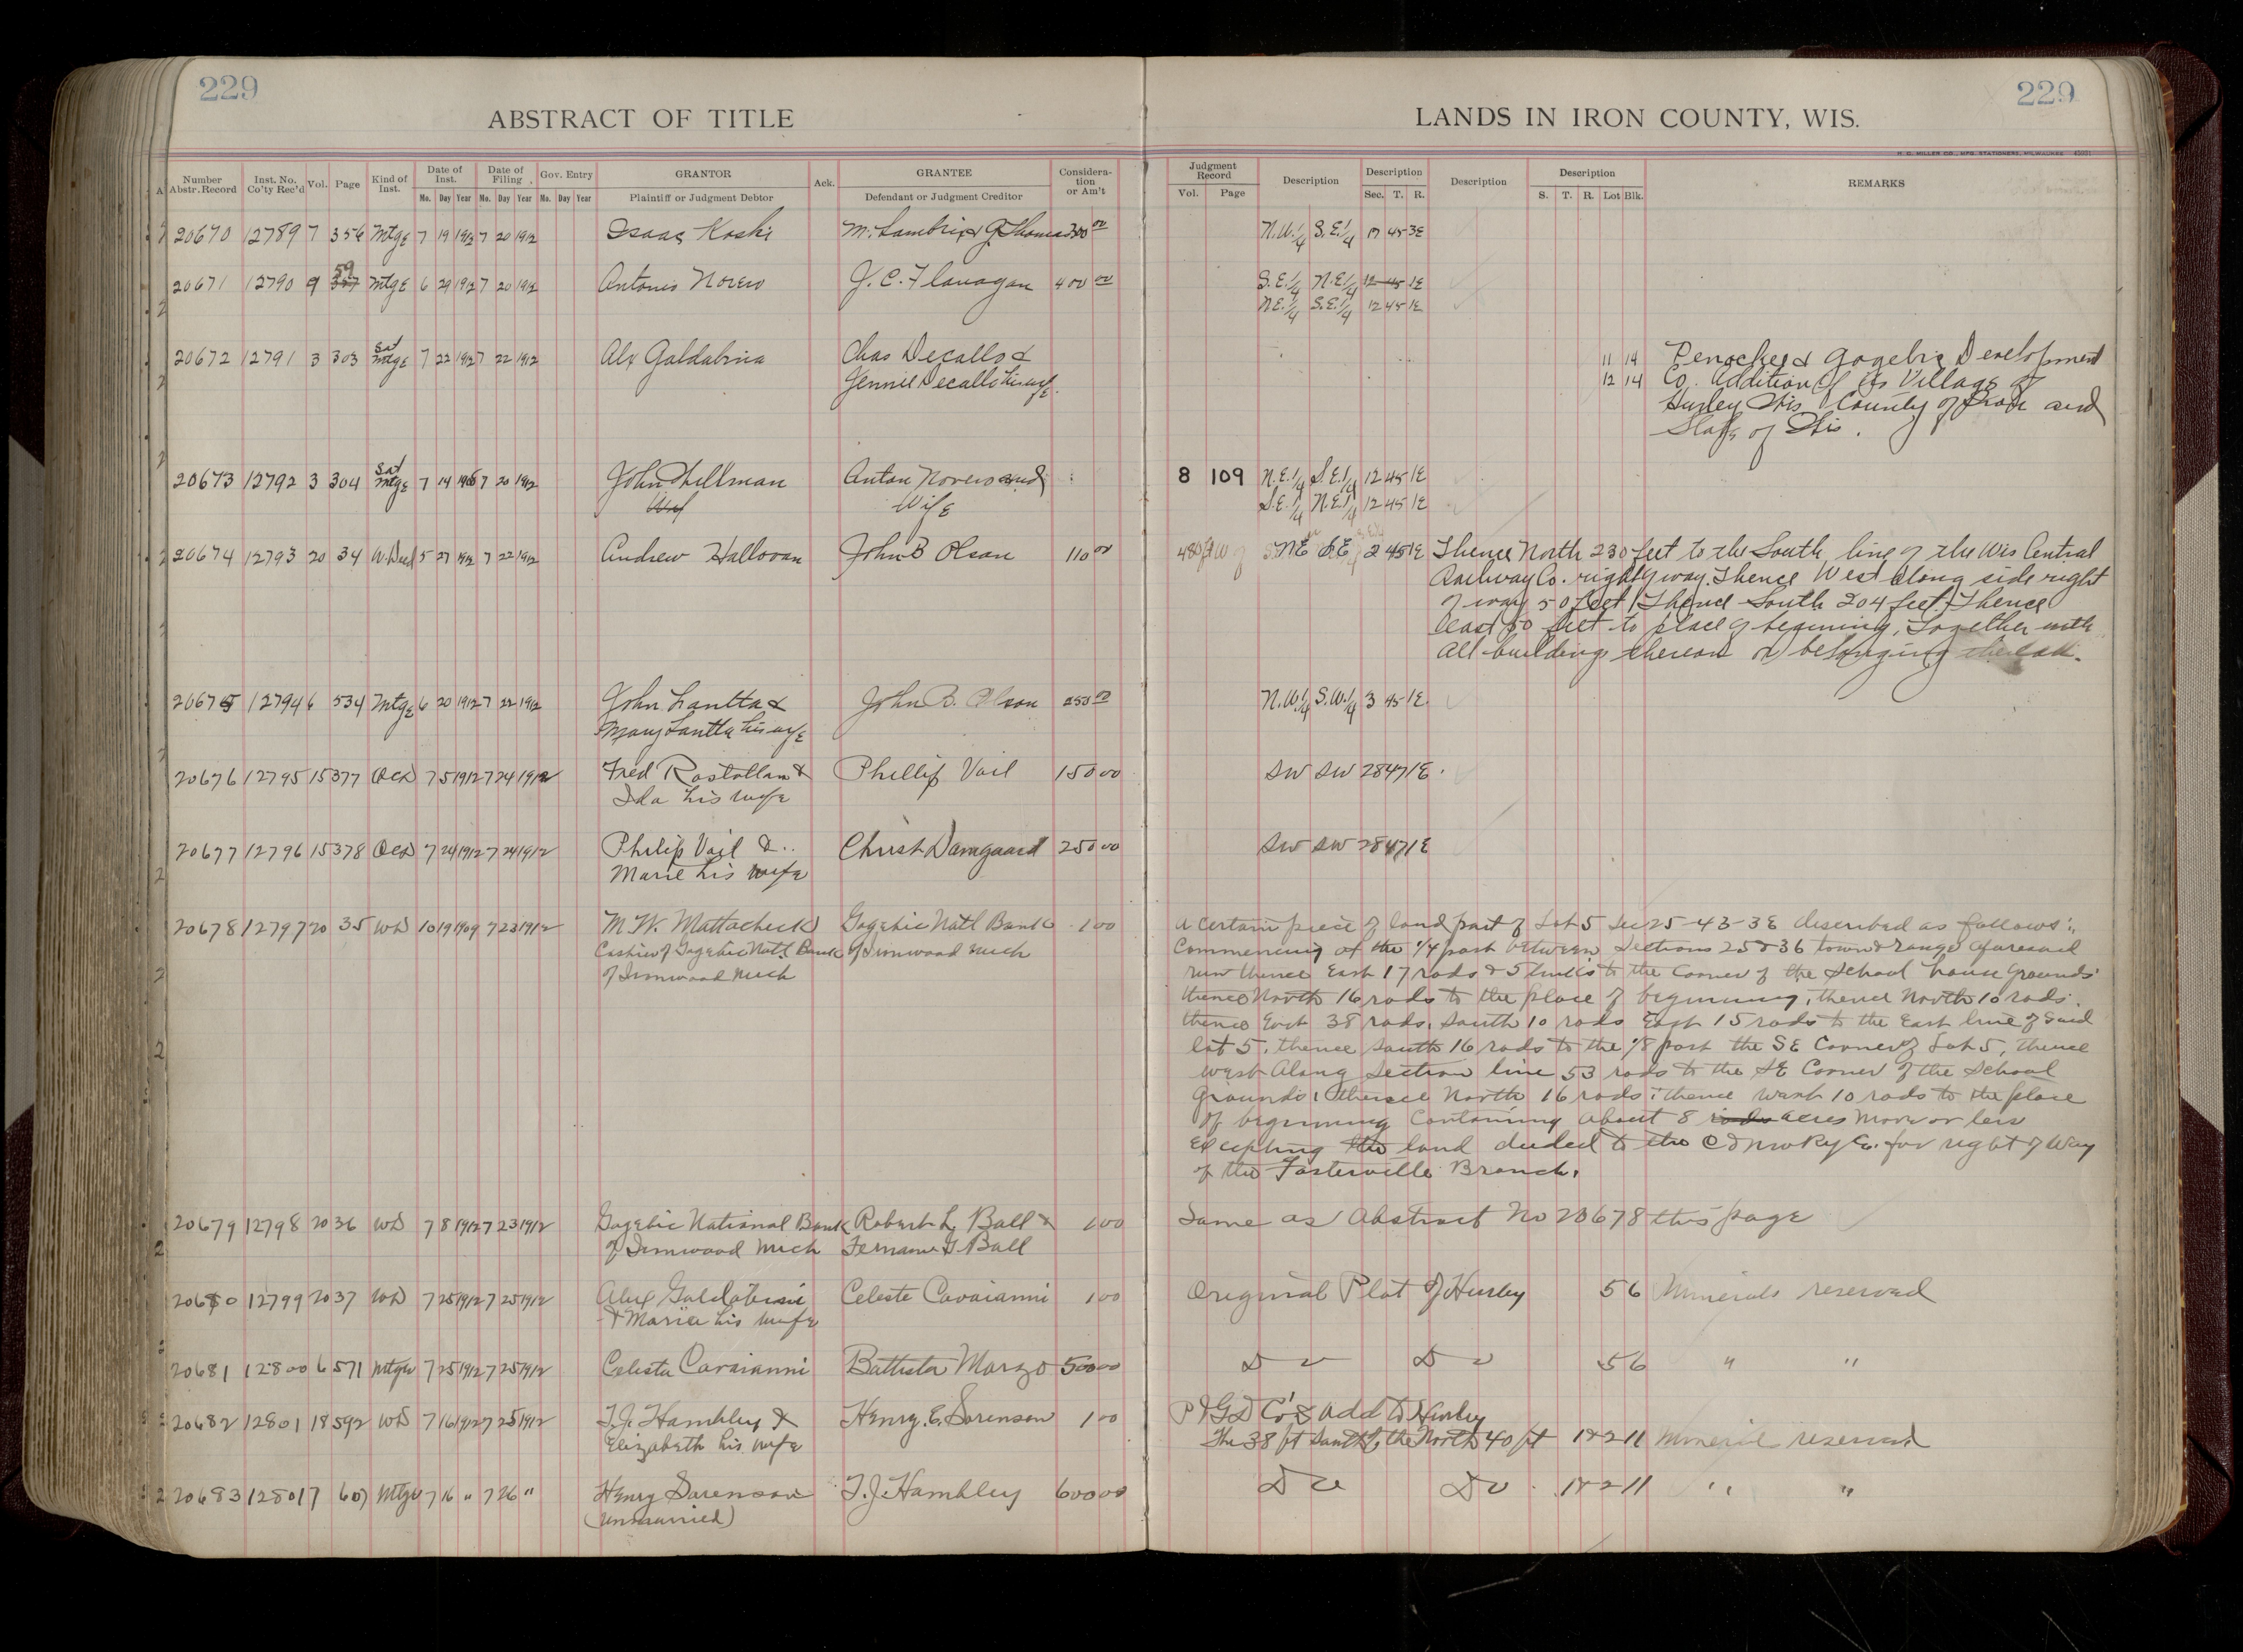 229
229
ABSTRACT OF TITLE
LANDS IN IRON COUNTY, WIS.
H. G. MILLER CO., MFG. STATIONERS, MILWAUKEE
Number Abstr. Record Inst. No. Co'ty Rec'd Vol. Page Kind of Inst. Date of Inst. Mo. Day Year Date of Filing Mo. Day Year Gov. Entry Mo. Day Year GRANTOR Plaintiff or Judgment Debtor Ack. GRANTEE Defendant or Judgment Creditor Consideration or Am't
Judgment Record Vol. Page Description Description Sec. T. R. Description Description S. T. R. Lot Blk. REMARKS
20670 12789 7 356 Mtge 7 19 1912 7 20 1912 Isaac Koski 300 00 N.W.1/4 S.E.1/4 17 45 3E
20671 12790 9 59 Mtge 6 29 1912 7 20 1912 Antonio Novero J. C. Flanagan 400 00 S.E.1/4 N.E.1/4 12 45 1E
N.E.1/4 S.E.1/4 12 45 1E
20672 12791 3 303 Sat Mtge 7 22 1912 7 22 1912 Alex Galdabina Chas Decallo & 11 14 Penokee & Gogebic Development
Jennie Decallo his wife. 12 14 Co. Addition of its Village of
Hurley Wis County of Iron and
State of Wis.
20673 12792 3 304 Sat Mtge 7 14 1908 7 20 1912 John Hellman Anton Novero and 8 109 N.E.1/4 S.E.1/4 12 45 1E
Wife S.E.1/4 N.E.1/4 12 45 1E
20674 12793 20 34 W.Deed 5 27 1912 7 22 1912 Andrew Hallovan John B Olson 110 00 480 ft W of NE SE 2 45 1E Thence North 230 feet to the South line of the Wis Central
Railway Co. right of way. Thence West along side right
of way 50 feet. Thence South 204 feet. Thence
East 50 feet to place of beginning, Together with
all buildings thereon or belonging
20675 12794 6 534 Mtge 6 20 1912 7 22 1912 John Lantta & John B. Olson 250 00 N.W.1/4 S.W.1/4 3 45 1E
Mary Lantta his wife
20676 12795 15 377 QCD 7 5 1912 7 24 1912 Fred Rostollan & Phillip Vail 150 00 SW SW 28 47 1E
Ida his wife
20677 12796 15 378 QCD 7 24 1912 7 24 1912 Philip Vail & Christ Damgaard 250 00 SW SW 28 47 1E
Marie his wife
20678 12797 20 35 WD 10 19 1909 7 23 1912 M. W. Mattacheck Gogebic Natl Bank 1 00 A certain piece of land part of Lot 5 Sec 25-43-3E described as follows:
Cashier of Gogebic Natl. Bank of Ironwood Mich Commencing at the 1/4 post between Sections 25 & 36 town & range aforesaid
of Ironwood Mich run thence East 17 rods & 5 links to the Corner of the School house Grounds
thence North 16 rods to the place of beginning, thence North 10 rods.
thence East 38 rods, South 10 rods East 15 rods to the East line of said
lot 5. thence South 16 rods to the 1/8 post the SE Corner of Lot 5, thence
West along Section line 53 rods to the SE Corner of the School
Grounds, thence North 16 rods, thence West 10 rods to the place
of beginning Containing about 8 rods acres more or less
Excepting the land deeded to the C & NW Ry Co. for right of Way
of the Fosterville Branch.
20679 12798 20 36 WD 7 8 1912 7 23 1912 Gogebic National Bank Robert L. Ball & 1 00 Same as Abstract No 20678 this page
of Ironwood Mich G. Ball
20680 12799 20 37 WD 7 25 1912 7 25 1912 Alex Galdabini Celeste Cavaianni 1 00 Original Plat of Hurley 5 6 Minerals reserved
& Maria his wife
20681 12800 6 571 Mtge 7 25 1912 7 25 1912 Celeste Cavaianni Battista Marzo 500 00 Do Do 5 6 " "
20682 12801 18 592 WD 7 16 1912 7 25 1912 T. J. Hambley & Henry. C. Sorensen 1 00 P & G D Co's Add to Hurley
Elizabeth his wife The 38 ft South of the North 40 ft 1 & 2 11 Mineral reserved
20683 12801 7 607 Mtge 7 16 " 7 26 " Henry Sorensen T. J. Hambley 600 00 Do Do 1 & 2 11 " "
(unmarried)